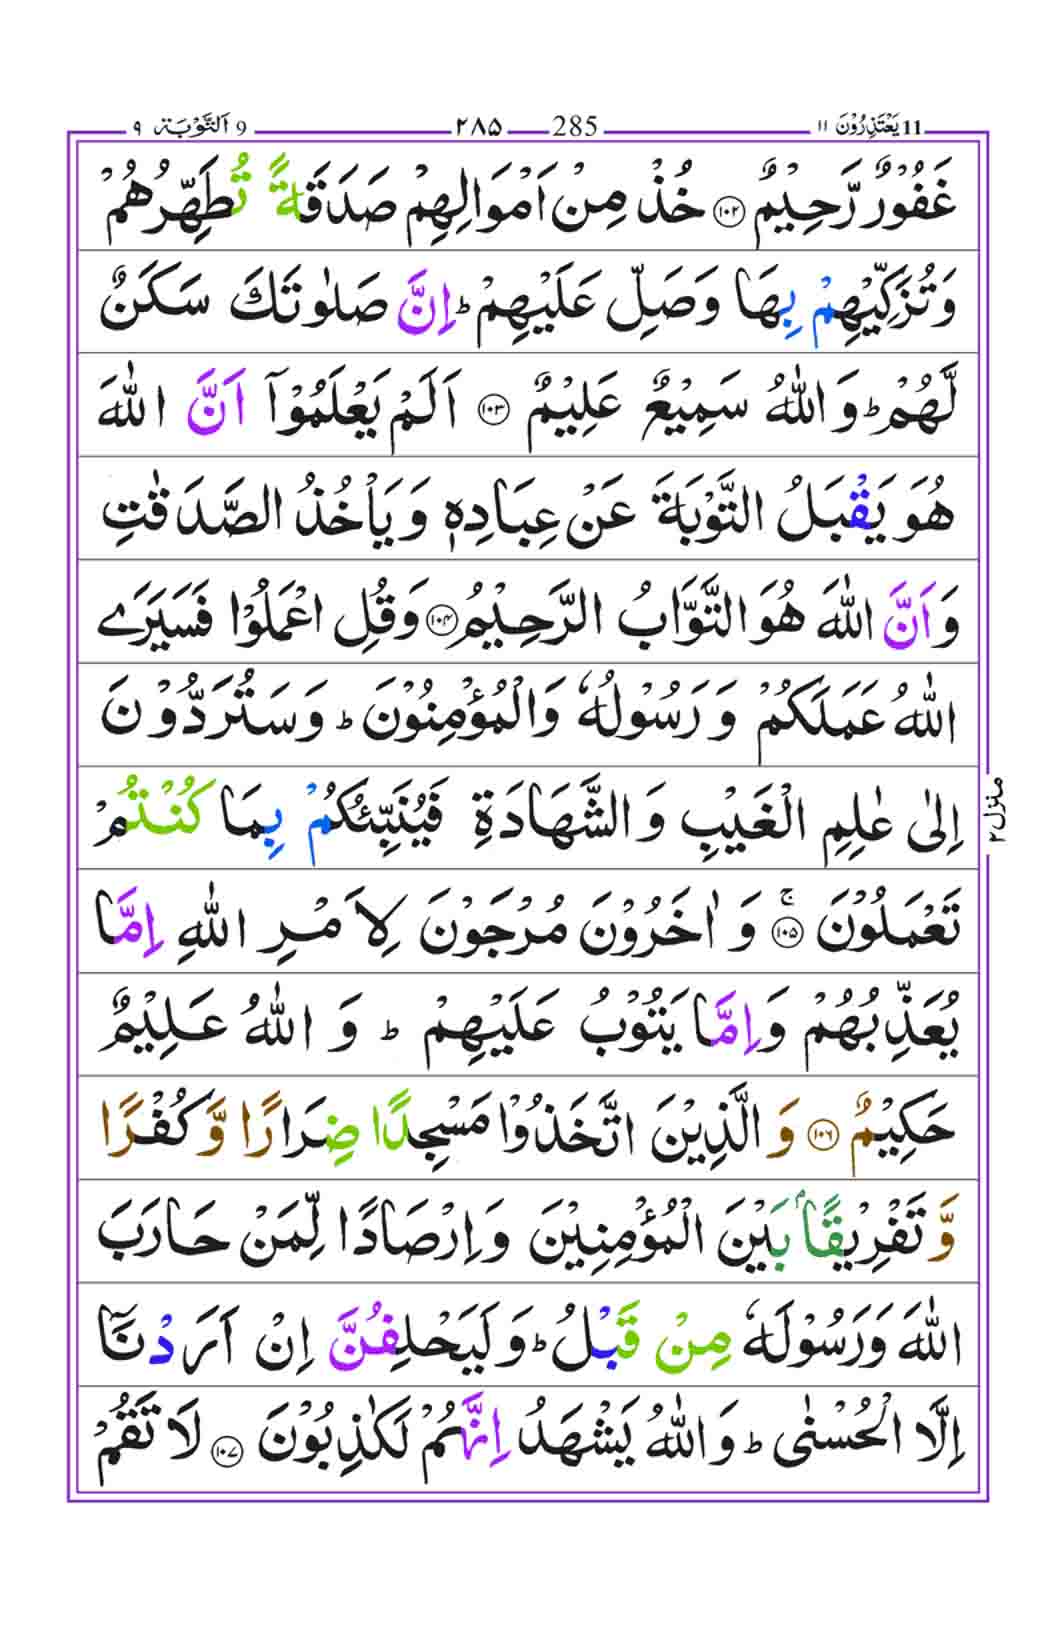 11 يَعْتَذِرُوْنَ ١١ 285 ٢٨٥ 9 اَلتَّوْبَة ٩
غَفُوْرٌ رَّحِيْمٌ ١٠٢ خُذْ مِنْ اَمْوَالِهِمْ صَدَقَةً تُطَهِّرُهُمْ
وَتُزَكِّيْهِمْ بِهَا وَصَلِّ عَلَيْهِمْ ؕ اِنَّ صَلٰوتَكَ سَكَنٌ
لَّهُمْ ؕ وَاللّٰهُ سَمِيْعٌ عَلِيْمٌ ١٠٣ اَلَمْ يَعْلَمُوْۤا اَنَّ اللّٰهَ
هُوَ يَقْبَلُ التَّوْبَةَ عَنْ عِبَادِهٖ وَيَاْخُذُ الصَّدَقٰتِ
وَاَنَّ اللّٰهَ هُوَ التَّوَّابُ الرَّحِيْمُ ١٠٤ وَقُلِ اعْمَلُوْا فَسَيَرَے
اللّٰهُ عَمَلَكُمْ وَرَسُوْلُهٗ وَالْمُؤْمِنُوْنَ ؕ وَسَتُرَدُّوْنَ
اِلٰى عٰلِمِ الْغَيْبِ وَالشَّهَادَةِ فَيُنَبِّئُكُمْ بِمَا كُنْتُمْ
تَعْمَلُوْنَ ۚ ١٠٥ وَاٰخَرُوْنَ مُرْجَوْنَ لِاَمْرِ اللّٰهِ اِمَّا
يُعَذِّبُهُمْ وَاِمَّا يَتُوْبُ عَلَيْهِمْ ؕ وَاللّٰهُ عَلِيْمٌ
حَكِيْمٌ ١٠٦ وَالَّذِيْنَ اتَّخَذُوْا مَسْجِدًا ضِرَارًا وَّكُفْرًا
وَّتَفْرِيْقًاۢ بَيْنَ الْمُؤْمِنِيْنَ وَاِرْصَادًا لِّمَنْ حَارَبَ
اللّٰهَ وَرَسُوْلَهٗ مِنْ قَبْلُ ؕ وَلَيَحْلِفُنَّ اِنْ اَرَدْنَاۤ
اِلَّا الْحُسْنٰى ؕ وَاللّٰهُ يَشْهَدُ اِنَّهُمْ لَكٰذِبُوْنَ ١٠٧ لَا تَقُمْ
منزل ٢